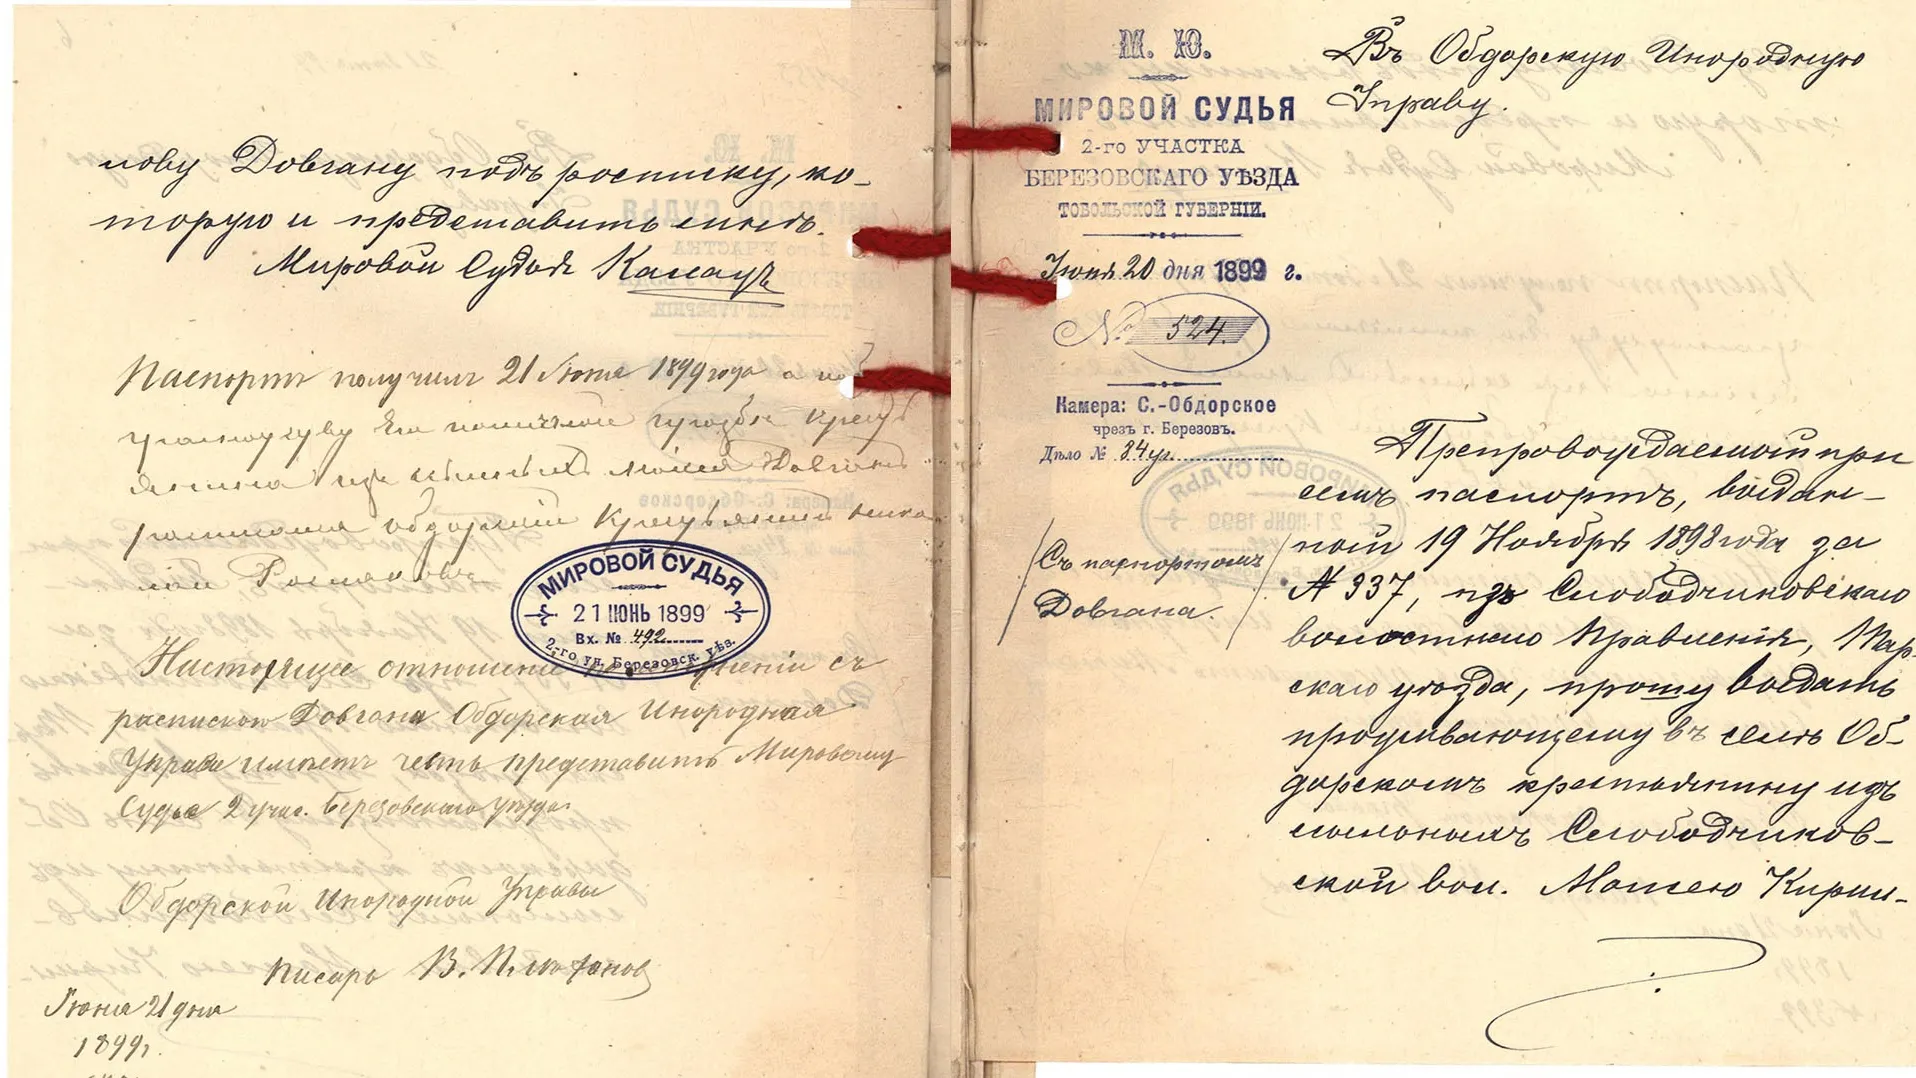 лову Довгану подъ росписку, ко-
торую и представить мнѣ.
Мировой Судья
Паспортъ получилъ 21 Июня 1899 года а по
его личной прозбѣ
Довганъ
росписался обдорскій Крестьянинъ
МИРОВОЙ СУДЬЯ
21 ІЮНЬ 1899
Вх. № 492
2-го уч. Березовск. уѣз.
Настоящее отношение по исполненіи съ
распиской Довгана Обдорская Инородная
Управа имѣетъ честь представить Мировому
Судье 2 учас. Березовскаго уѣзда.
Обдорской Инородной Управы
Писарь В.
Июня 21 дня
1899 г.
М. Ю.
МИРОВОЙ СУДЬЯ
2-го УЧАСТКА
БЕРЕЗОВСКАГО УѢЗДА
ТОБОЛЬСКОЙ ГУБЕРНІИ.
Июня 20 дня 1899 г.
№ 524.
Камера: С.-Обдорское
чрезъ г. Березовъ.
Дѣло № 84 уг.
Съ паспортомъ
Довгана.
Въ Обдорскую Инородную
Управу.
Препровождаемый при
семъ паспортъ, выдан-
ный 19 Ноября 1898 года за
№ 337, изъ Слободчиковскаго
волостнаго Правленія, Тар-
скаго уѣзда, прошу выдать
проживающему въ селѣ Об-
дорскомъ крестьянину изъ
ссыльныхъ Слободчиков-
ской вол. Моисею Кирил-